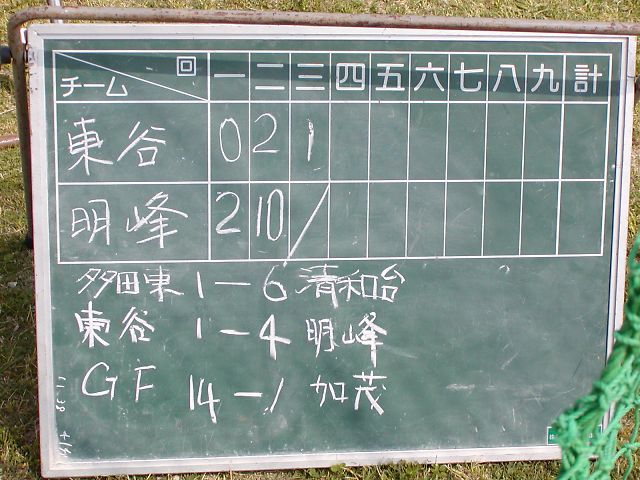 チーム 回 一 二 三 四 五 六 七 八 九 計
東谷 0 2 1
明峰 2 10 /
多田東 1-6 清和台
東谷 1-4 明峰
GF 14-1 加茂